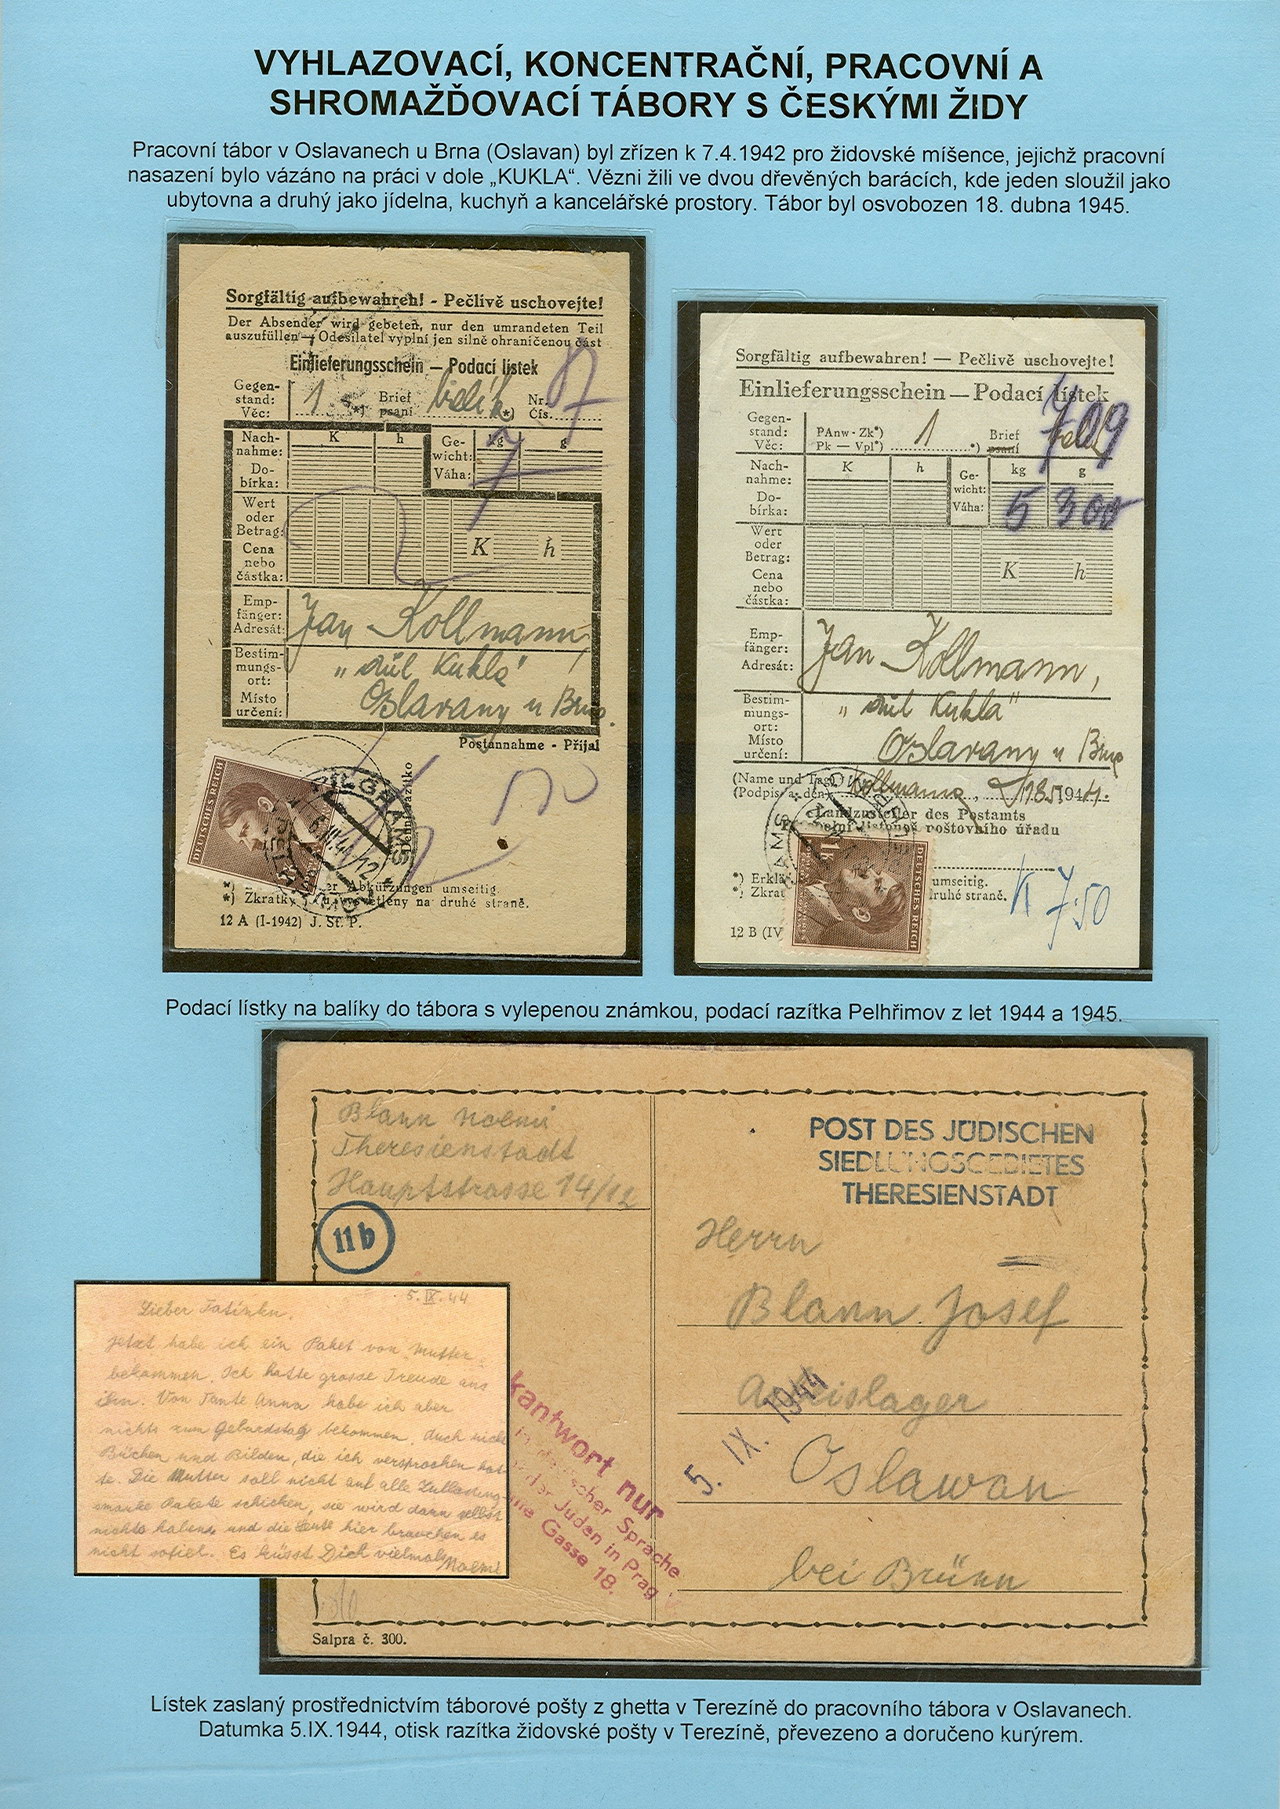 VYHLAZOVACÍ, KONCENTRAČNÍ, PRACOVNÍ A
SHROMAŽĎOVACÍ TÁBORY S ČESKÝMI ŽIDY
Pracovní tábor v Oslavanech u Brna (Oslavan) byl zřízen k 7.4.1942 pro židovské míšence, jejichž pracovní
nasazení bylo vázáno na práci v dole „KUKLA“. Vězni žili ve dvou dřevěných barácích, kde jeden sloužil jako
ubytovna a druhý jako jídelna, kuchyň a kancelářské prostory. Tábor byl osvobozen 18. dubna 1945.
Sorgfältig aufbewahren! - Pečlivě uschovejte!
Der Absender wird gebeten, nur den umrandeten Teil
auszufüllen — Odesílatel vyplní jen silně ohraničenou část
Einlieferungsschein — Podací lístek
Gegen-
stand:
Věc:
1
Brief
psaní
balík
Nr.
Čís.
Nach-
nahme:
Do-
bírka:
K h
Ge-
wicht:
Váha:
kg g
7
Wert
oder
Betrag:
Cena
nebo
částka:
K h
Emp-
fänger:
Adresát:
Jan Kollmann,
Bestim-
mungs-
ort:
Místo
určení:
„důl Kukla“
Oslavany u Brna.
Postannahme - Přijal
DEUTSCHES REICH
PILGRAMS
12 A (I-1942) J. St. P.
*) Zkratky
na druhé straně.
Abkürzungen umseitig.
Sorgfältig aufbewahren! — Pečlivě uschovejte!
Einlieferungsschein — Podací lístek
709
Gegen-
stand:
Věc:
PAnw - Zk*)
Pk — Vpl*)
1
Brief
psaní
Nach-
nahme:
Do-
bírka:
K h
Ge-
wicht:
Váha:
kg g
5 300
Wert
oder
Betrag:
Cena
nebo
částka:
K h
Emp-
fänger:
Adresát:
Jan Kollmann,
Bestim-
mungs-
ort:
Místo
určení:
„důl Kukla“
Oslavany u Brna
(Name und Tag)
(Podpis a den)
Kollmanna,
Landzusteller des Postamts
poštovního úřadu
umseitig.
druhé straně.
K 7·50
DEUTSCHES REICH
12 B (IV
Podací lístky na balíky do tábora s vylepenou známkou, podací razítka Pelhřimov z let 1944 a 1945.
Blann Noemi
Theresienstadt
Hauptstrasse 14/12
11b
POST DES JÜDISCHEN
SIEDLUNGSGEBIETES
THERESIENSTADT
Herrn
Blann Josef
Arbeitslager
Oslawan
bei Brünn
5. IX. 1944
kantwort nur
in deutscher Sprache
der Juden in Prag V
Gasse 18.
5. IX. 44
Lieber Tatinku.
Jetzt habe ich ein Paket von Mutter
bekommen. Ich hatte grosse Freude aus
ihm. Von Tante Anna habe ich aber
nichts zum Geburtstag bekommen. Auch nicht
Büchen und Bilden, die ich versprochen hat-
te. Die Mutter soll nicht auf alle Zullassung-
smarke Pakete schicken, sie wird dann selbst
nichts haben und die Leute hier brauchen es
nicht sofiel. Es küsst Dich vielmals Noemi
Salpra č. 300.
Lístek zaslaný prostřednictvím táborové pošty z ghetta v Terezíně do pracovního tábora v Oslavanech.
Datumka 5.IX.1944, otisk razítka židovské pošty v Terezíně, převezeno a doručeno kurýrem.